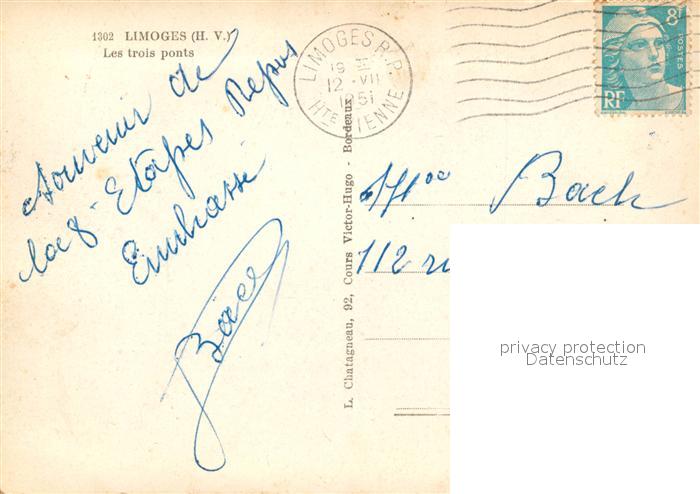 1302 LIMOGES (H. V.)
Les trois ponts
Souvenir de
la 8e Etapes Repos
Embrasse
Bach
L. Chatagneau, 92, Cours Victor-Hugo - Bordeaux
LIMOGES R.P.
19 H
12 - VII
1951
HTE VIENNE
8F
POSTES
RF
Bach
112 ru
privacy protection
Datenschutz